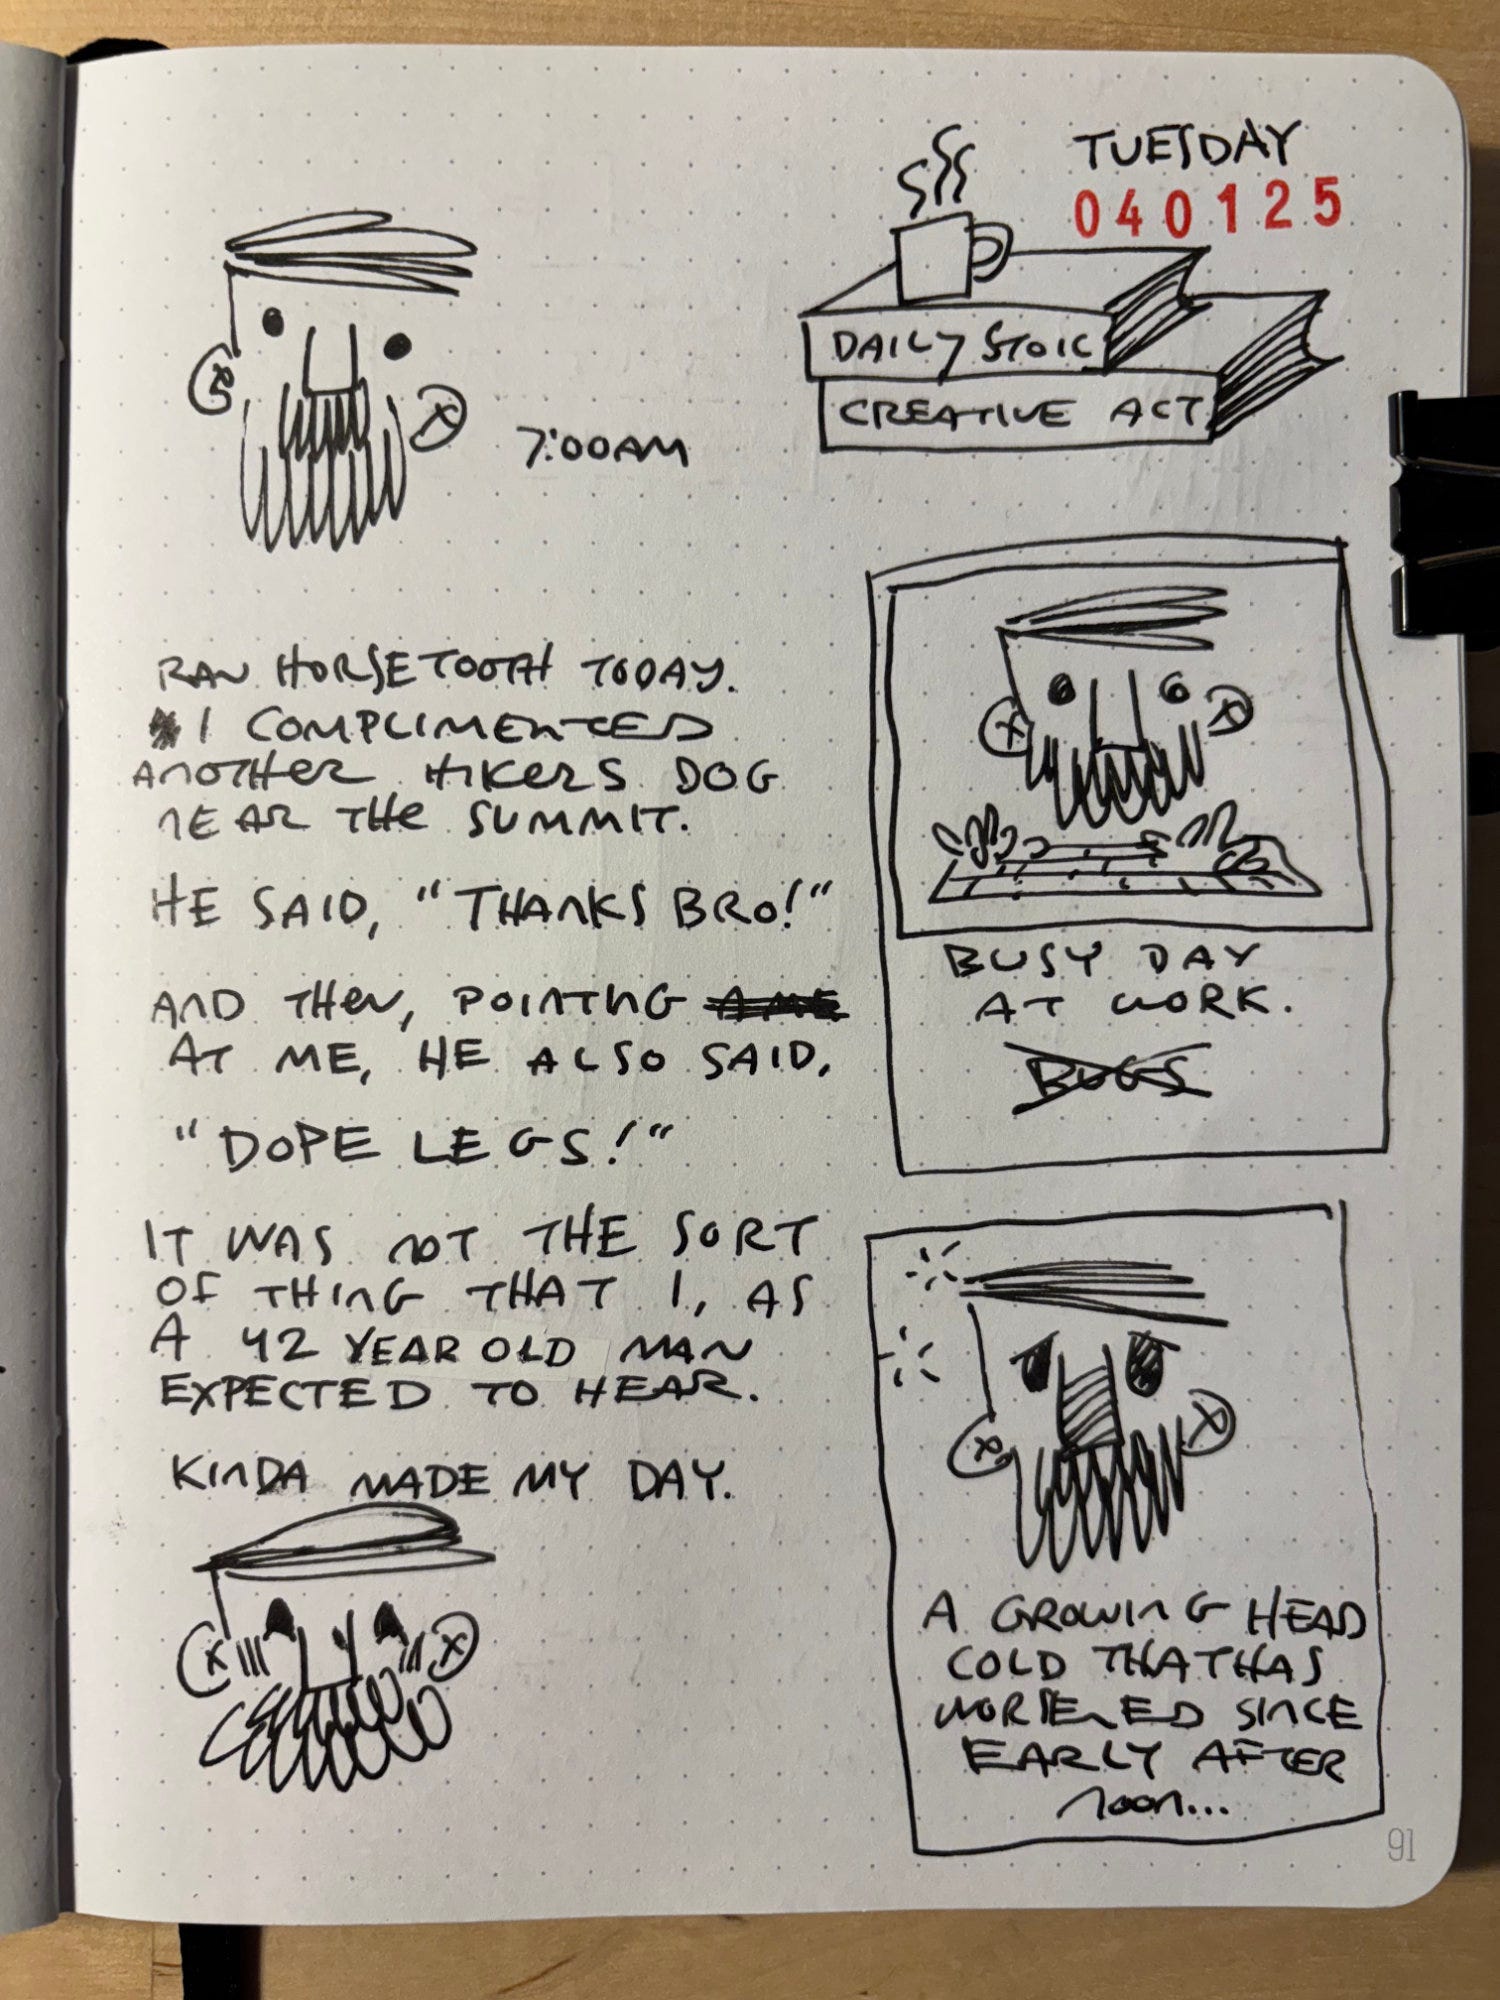 TUESDAY
040125
DAILY STOIC
CREATIVE ACT
7:00AM
RAN HORSETOOTH TODAY.
I COMPLIMENTED
ANOTHER HIKERS DOG
NEAR THE SUMMIT.
HE SAID, "THANKS BRO!"
AND THEN, POINTING A ME
AT ME, HE ALSO SAID,
"DOPE LEGS!"
IT WAS NOT THE SORT
OF THING THAT I, AS
A 42 YEAR OLD MAN
EXPECTED TO HEAR.
KINDA MADE MY DAY.
BUSY DAY
AT WORK.
BUGS
A GROWING HEAD
COLD THAT HAS
WORSENED SINCE
EARLY AFTER
NOON...
91